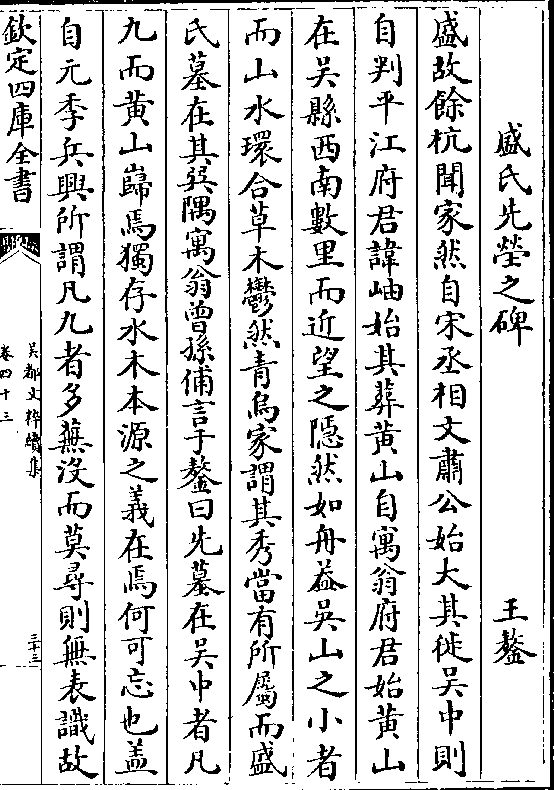 盛氏先塋之碑　王鏊
盛故餘杭聞家然自宋丞相文肅公始大其徙吳中則
自判平江府君諱岫始其葬黃山自寓翁府君始黃山
在吳縣西南數里而近望之隠然如舟葢吳山之小者
而山水環合草木鬱然青烏家謂其秀當有所屬而盛
氏墓在其巽隅寓翁曾孫俌言于鏊曰先墓在吳中者凡
九而黃山巋焉獨存水木本源之義在焉何可忘也盖
自元季兵興所謂凡九者多蕪沒而莫尋則無表識故
欽定四庫全書
吳都文粹續集
卷四十三
三十三